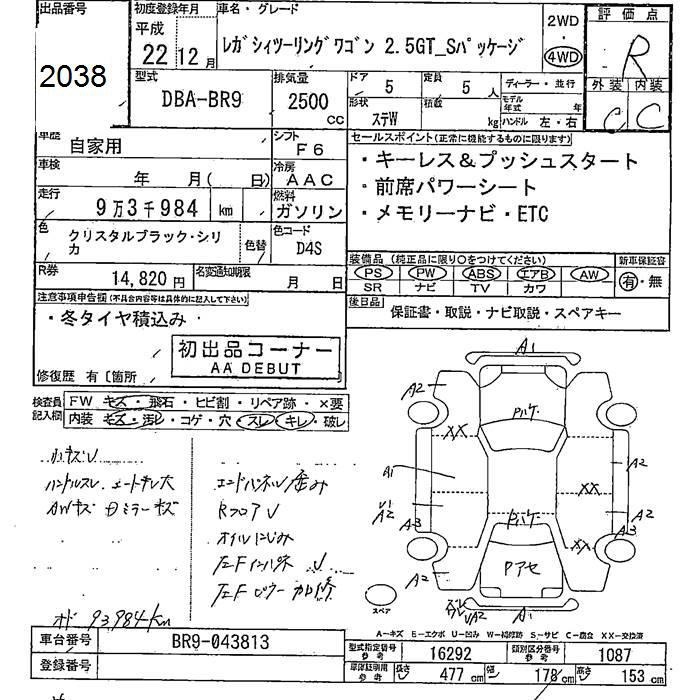 出品番号
2038
初度登録年月
平成
22年 12月
車名・グレード
レガシィツーリングワゴン 2.5GT_Sパッケージ
2WD
・
4WD
評価点
R
外装 内装
C C
型式
DBA-BR9
排気量
2500 cc
ドア 5
定員 5 人
形状 ステW
積載 kg
ディーラー・並行
モデル年式 年
ハンドル 左・右
車歴 自家用
シフト F6
車検 年 月( 日)
冷房 AAC
走行 9万3千984 km
燃料 ガソリン
色 クリスタルブラック・シリカ
色替
色コード D4S
R券 14,820円
名変通知期限 月 日
セールスポイント(正常に機能するものに限ります)
・キーレス&プッシュスタート
・前席パワーシート
・メモリーナビ・ETC
装備品 (純正品に限り○をつけてください)
PS PW ABS エアB AW
SR ナビ TV カワ
新車保証書
有・無
後日品 保証書・取説・ナビ取説・スペアキー
注意事項申告欄(不具合内容等は具体的に記入して下さい)
・冬タイヤ積込み・
初出品コーナー
AA DEBUT
修復歴 有〔箇所
検査員記入欄
FW キズ・飛石・ヒビ割・リペア跡・×要
内装 キズ・汚レ・コゲ・穴・スレ・キレ・破レ
小キズU
ハンドルスレ シートキレ大
AWキズ ミラーキズ
エンドパネル歪み
RフロアU
オイルにじみ
左Fインパネ U
左Fピラー 加修
オド 93984km
A1
A2
Pハケ
XX
A1
A2
U1
A2
XX
A2
A3
Pハケ
A3
A2
XX
Pアセ
UA2
A1
スペア
A-キズ E-エクボ U-凹み W-補修跡 S-サビ C-腐食 XX-交換済
車台番号 BR9-043813
登録番号
型式指定番号 参考 16292
類別区分番号 参考 1087
車庫証明用 参考 長さ 477 cm 幅 178 cm 高さ 153 cm